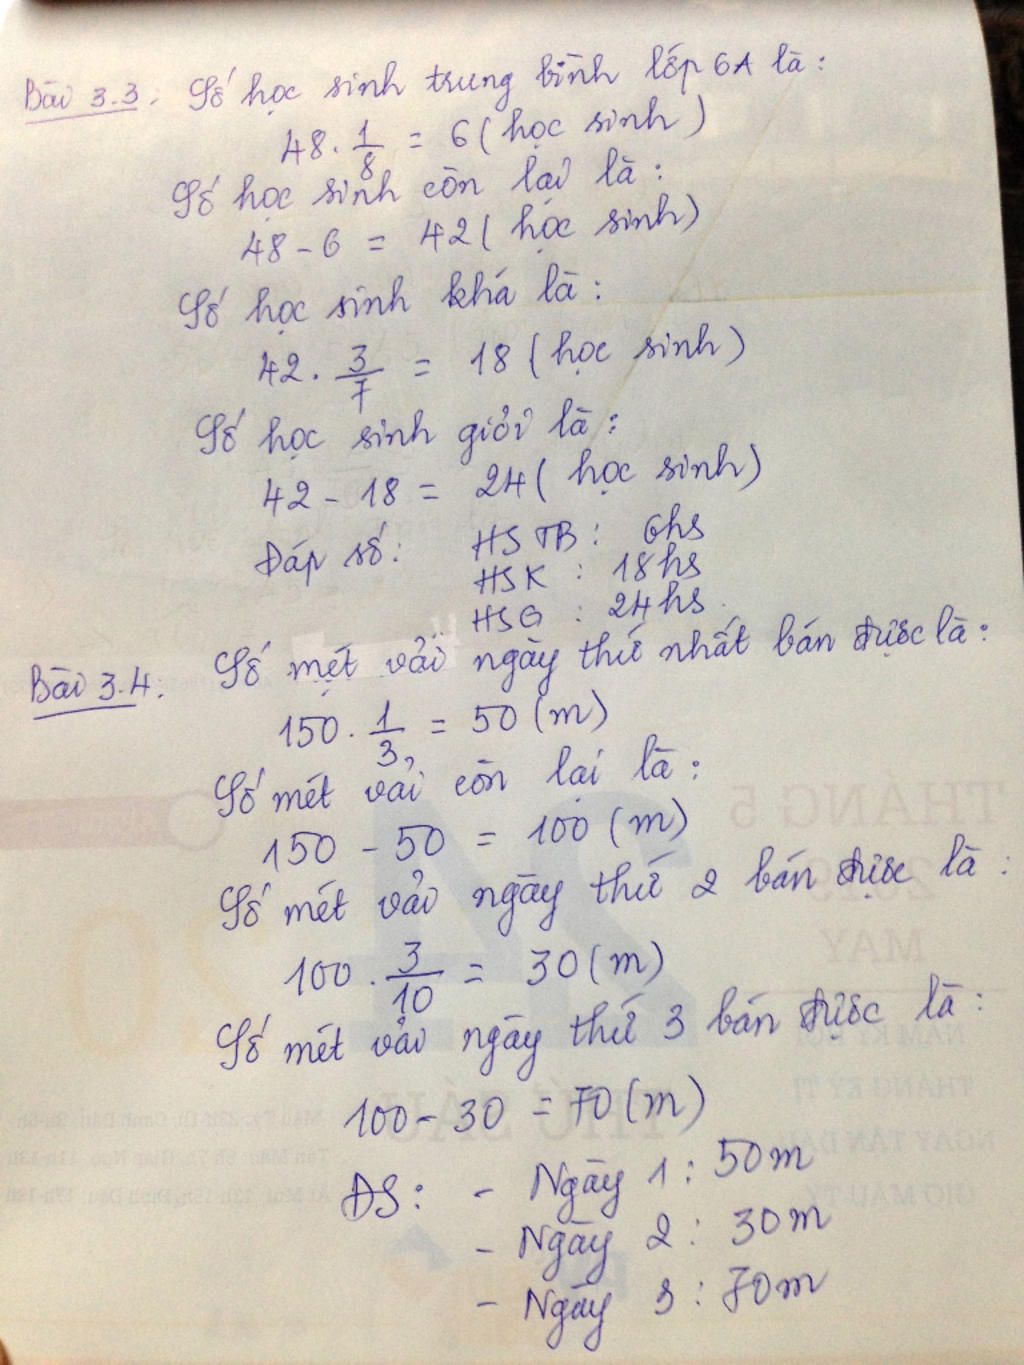 Bài 3.3: Số học sinh trung bình lớp 6A là:
48 . 1/8 = 6 (học sinh)
Số học sinh còn lại là:
48 - 6 = 42 (học sinh)
Số học sinh khá là:
42 . 3/7 = 18 (học sinh)
Số học sinh giỏi là:
42 - 18 = 24 (học sinh)
Đáp số: HS TB: 6hs
HSK : 18hs
HSG : 24hs.
Bài 3.4: Số mét vải ngày thứ nhất bán được là:
150 . 1/3 = 50 (m)
Số mét vải còn lại là:
150 - 50 = 100 (m)
Số mét vải ngày thứ 2 bán được là:
100 . 3/10 = 30 (m)
Số mét vải ngày thứ 3 bán được là:
100 - 30 = 70 (m)
ĐS: - Ngày 1: 50m
- Ngày 2: 30m
- Ngày 3: 70m
THÁNG 5
MAY
24